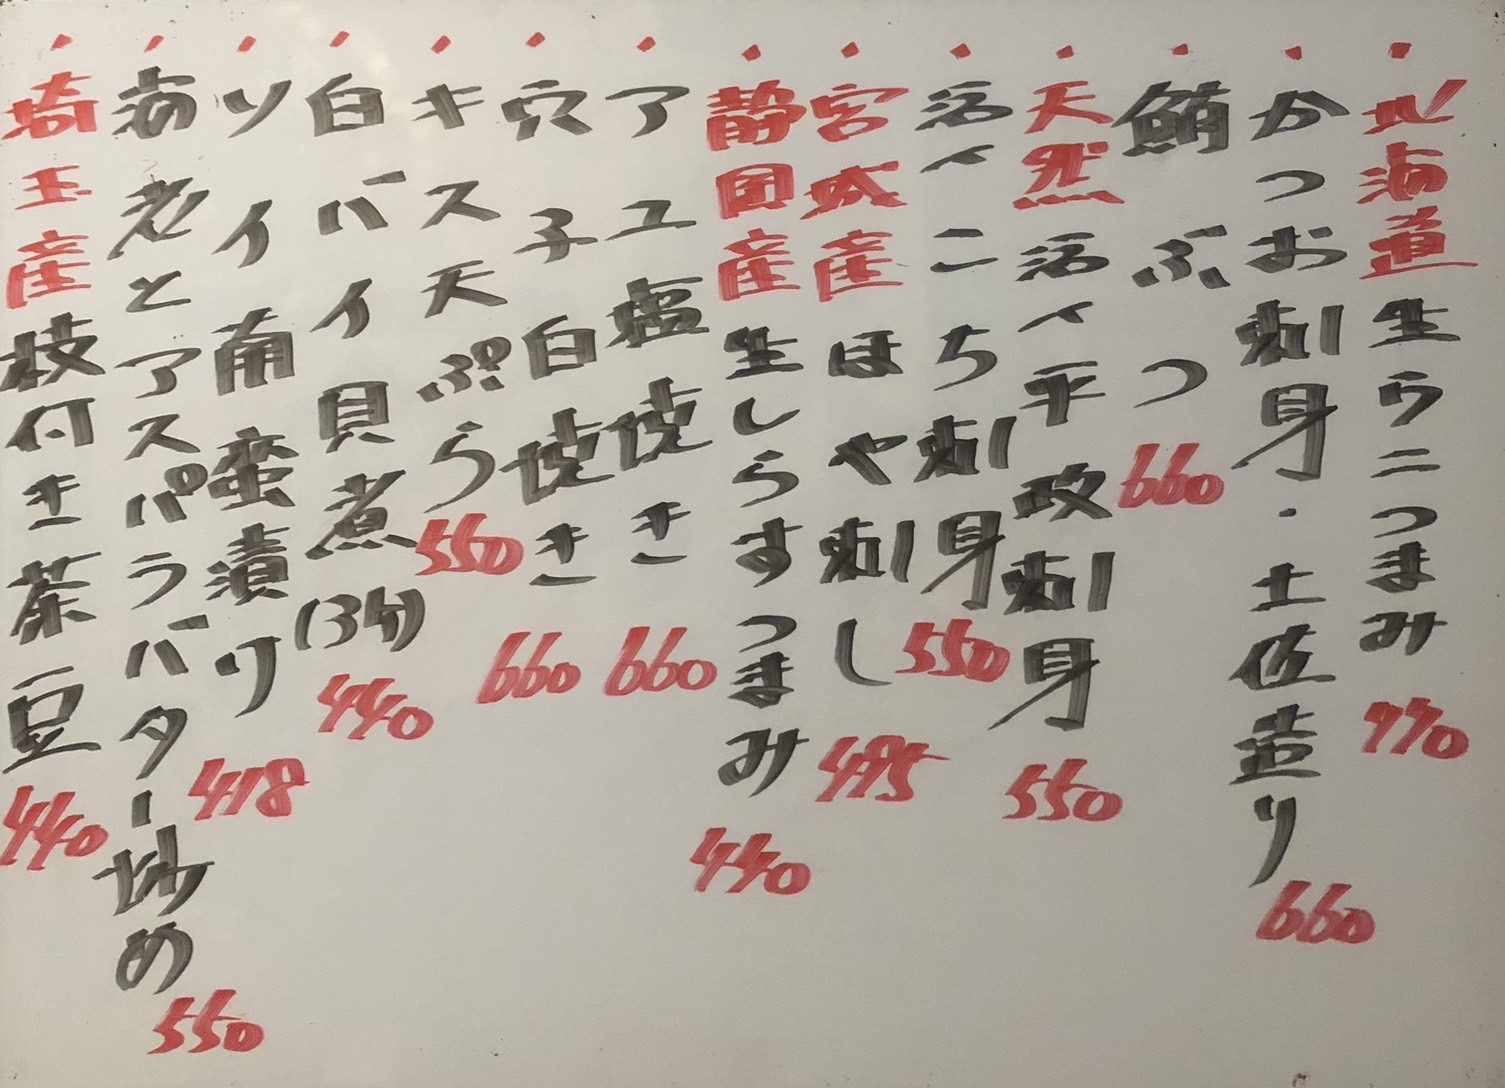 北海道生ウニつまみ 770
かつお刺身・土佐造り 660
鮪ぶつ 660
天然活〆平政刺身 550
活〆こち刺身 550
宮城産ほや刺し 495
静岡産生しらすつまみ 440
アユ塩焼き 660
穴子白焼き 660
キス天ぷら 550
白バイ貝煮(3ヶ) 440
ソイ南蛮漬け 418
海老とアスパラバター炒め 550
埼玉産枝付き茶豆 440